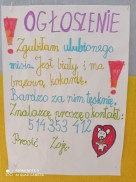 OGŁOSZENIE
Zgubiłam ulubionego
misia. Jest biały i ma
brązową kokardę.
Bardzo za nim tęsknię.
Znalazcę proszę o kontakt:
514 353 412
Zoja.